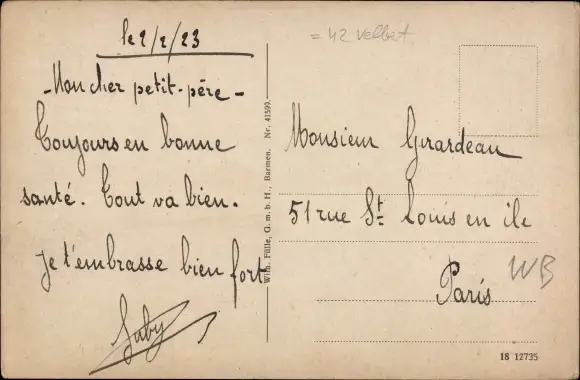 le 2/2/23
- Mon cher petit-père -
Toujours en bonne
santé. Tout va bien.
Je t'embrasse bien fort
Wilh. Fülle, G. m. b. H., Barmen. Nr. 41599.
= 42 Velbert
Monsieur Girardeau
51 rue St Louis en ile
Paris
WB
18 12735